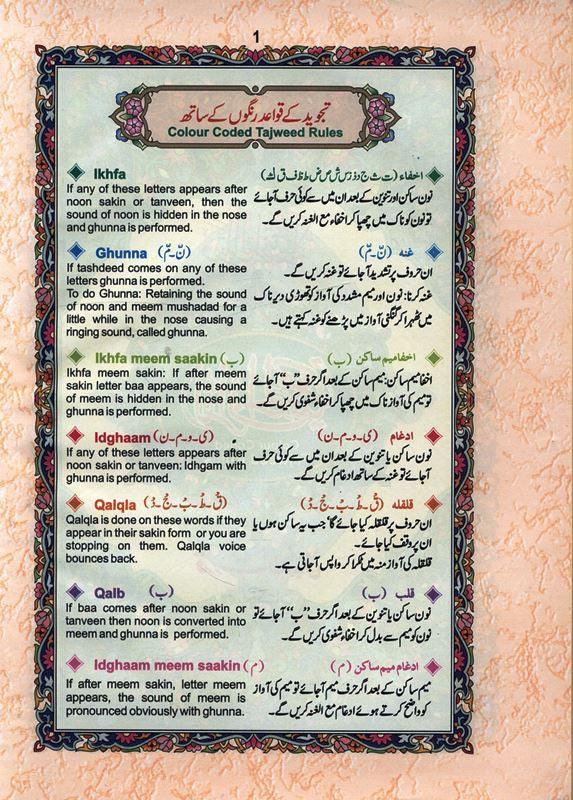 1
تجوید کے قواعد رنگوں کے ساتھ
Colour Coded Tajweed Rules
Ikhfa
If any of these letters appears after
noon sakin or tanveen, then the
sound of noon is hidden in the nose
and ghunna is performed.
اخفاء (ت ث ج د ذ ز س ش ص ض ط ظ ف ق ك)
نون ساکن اور تنوین کے بعد ان میں سے کوئی حرف آجائے
تو نون کو ناک میں چھپا کر اخفاء مع الغنہ کریں گے۔
Ghunna (نّ - مّ)
If tashdeed comes on any of these
letters ghunna is performed.
To do Ghunna: Retaining the sound
of noon and meem mushadad for a
little while in the nose causing a
ringing sound, called ghunna.
غنہ (نّ - مّ)
ان حروف پر تشدید آجائے تو غنہ کریں گے۔
غنہ کرنا: نون اور میم مشدد کی آواز کو تھوڑی دیر ناک
میں ٹھہرا کر گنگنی آواز میں پڑھنے کو غنہ کہتے ہیں۔
Ikhfa meem saakin (ب)
Ikhfa meem sakin: If after meem
sakin letter baa appears, the sound
of meem is hidden in the nose and
ghunna is performed.
اخفا میم ساکن (ب)
اخفا میم ساکن: میم ساکن کے بعد اگر حرف ”ب“ آجائے
تو میم کی آواز ناک میں چھپا کر اخفاء شفوی کریں گے۔
Idghaam (ی - و - م - ن)
If any of these letters appears after
noon sakin or tanveen: Idhgam with
ghunna is performed.
ادغام (ی - و - م - ن)
نون ساکن یا تنوین کے بعد ان میں سے کوئی حرف
آجائے تو غنہ کے ساتھ ادغام کریں گے۔
Qalqla (قُ - طُ - بُ - جُ - دُ)
Qalqla is done on these words if they
appear in their sakin form or you are
stopping on them. Qalqla voice
bounces back.
قلقلہ (قُ - طُ - بُ - جُ - دُ)
ان حروف پر قلقلہ کیا جائے گا جب یہ ساکن ہوں یا
ان پر وقف کیا جائے۔
قلقلہ کی آواز منہ میں ٹکرا کر واپس آجاتی ہے۔
Qalb (ب)
If baa comes after noon sakin or
tanveen then noon is converted into
meem and ghunna is performed.
قلب (ب)
نون ساکن یا تنوین کے بعد اگر حرف ”ب“ آجائے تو
نون کو میم سے بدل کر اخفاء شفوی کریں گے۔
Idghaam meem saakin (م)
If after meem sakin, letter meem
appears, the sound of meem is
pronounced obviously with ghunna.
ادغام میم ساکن (م)
میم ساکن کے بعد اگر حرف میم آجائے تو میم کی آواز
کو واضح کرتے ہوئے ادغام مع الغنہ کریں گے۔